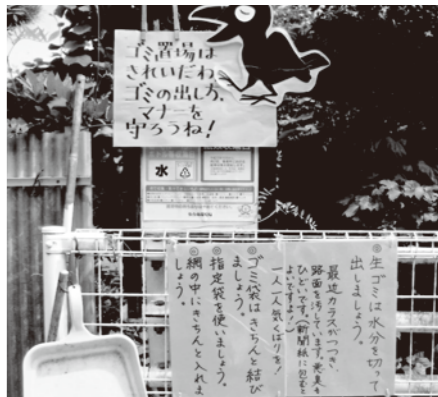 ゴミ置場は
きれいだね
ゴミの出し方、
マナーを
守ろうね!
水
◎生ゴミは水分を切って
出しましょう。
最近カラスがつつき、
路面を汚しています。悪臭も
ひどいです。(新聞紙に包むと
よいですよ!)
一人一人気くばりを!
◎ゴミ袋はきちんと結び
ましょう。
◎指定袋を使いましょう。
◎網の中にきちんと入れま
しょう。